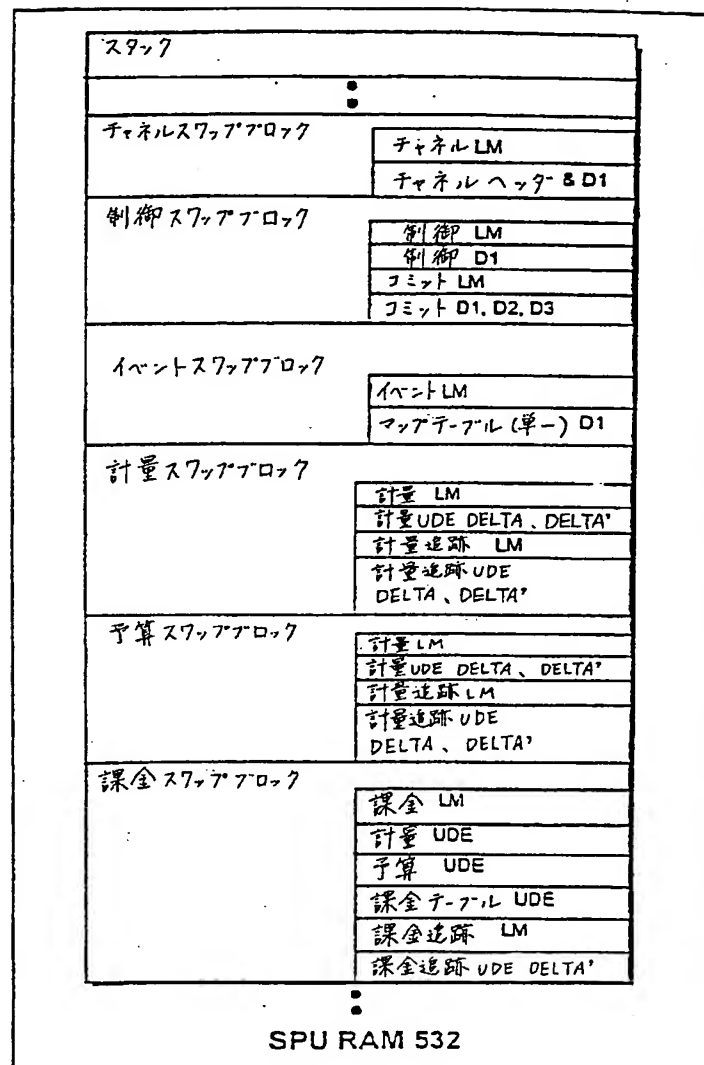 スタック
チャネルスワップブロック
チャネル LM
チャネル ヘッダー & D1
制御スワップブロック
制御 LM
制御 D1
コミット LM
コミット D1, D2, D3
イベントスワップブロック
イベント LM
マップテーブル (単一) D1
計量スワップブロック
計量 LM
計量UDE DELTA、DELTA'
計量追跡 LM
計量追跡 UDE
DELTA、DELTA'
予算スワップブロック
計量 LM
計量UDE DELTA、DELTA'
計量追跡 LM
計量追跡 UDE
DELTA、DELTA'
課金スワップブロック
課金 LM
計量 UDE
予算 UDE
課金テーブル UDE
課金追跡 LM
課金追跡 UDE DELTA'
SPU RAM 532